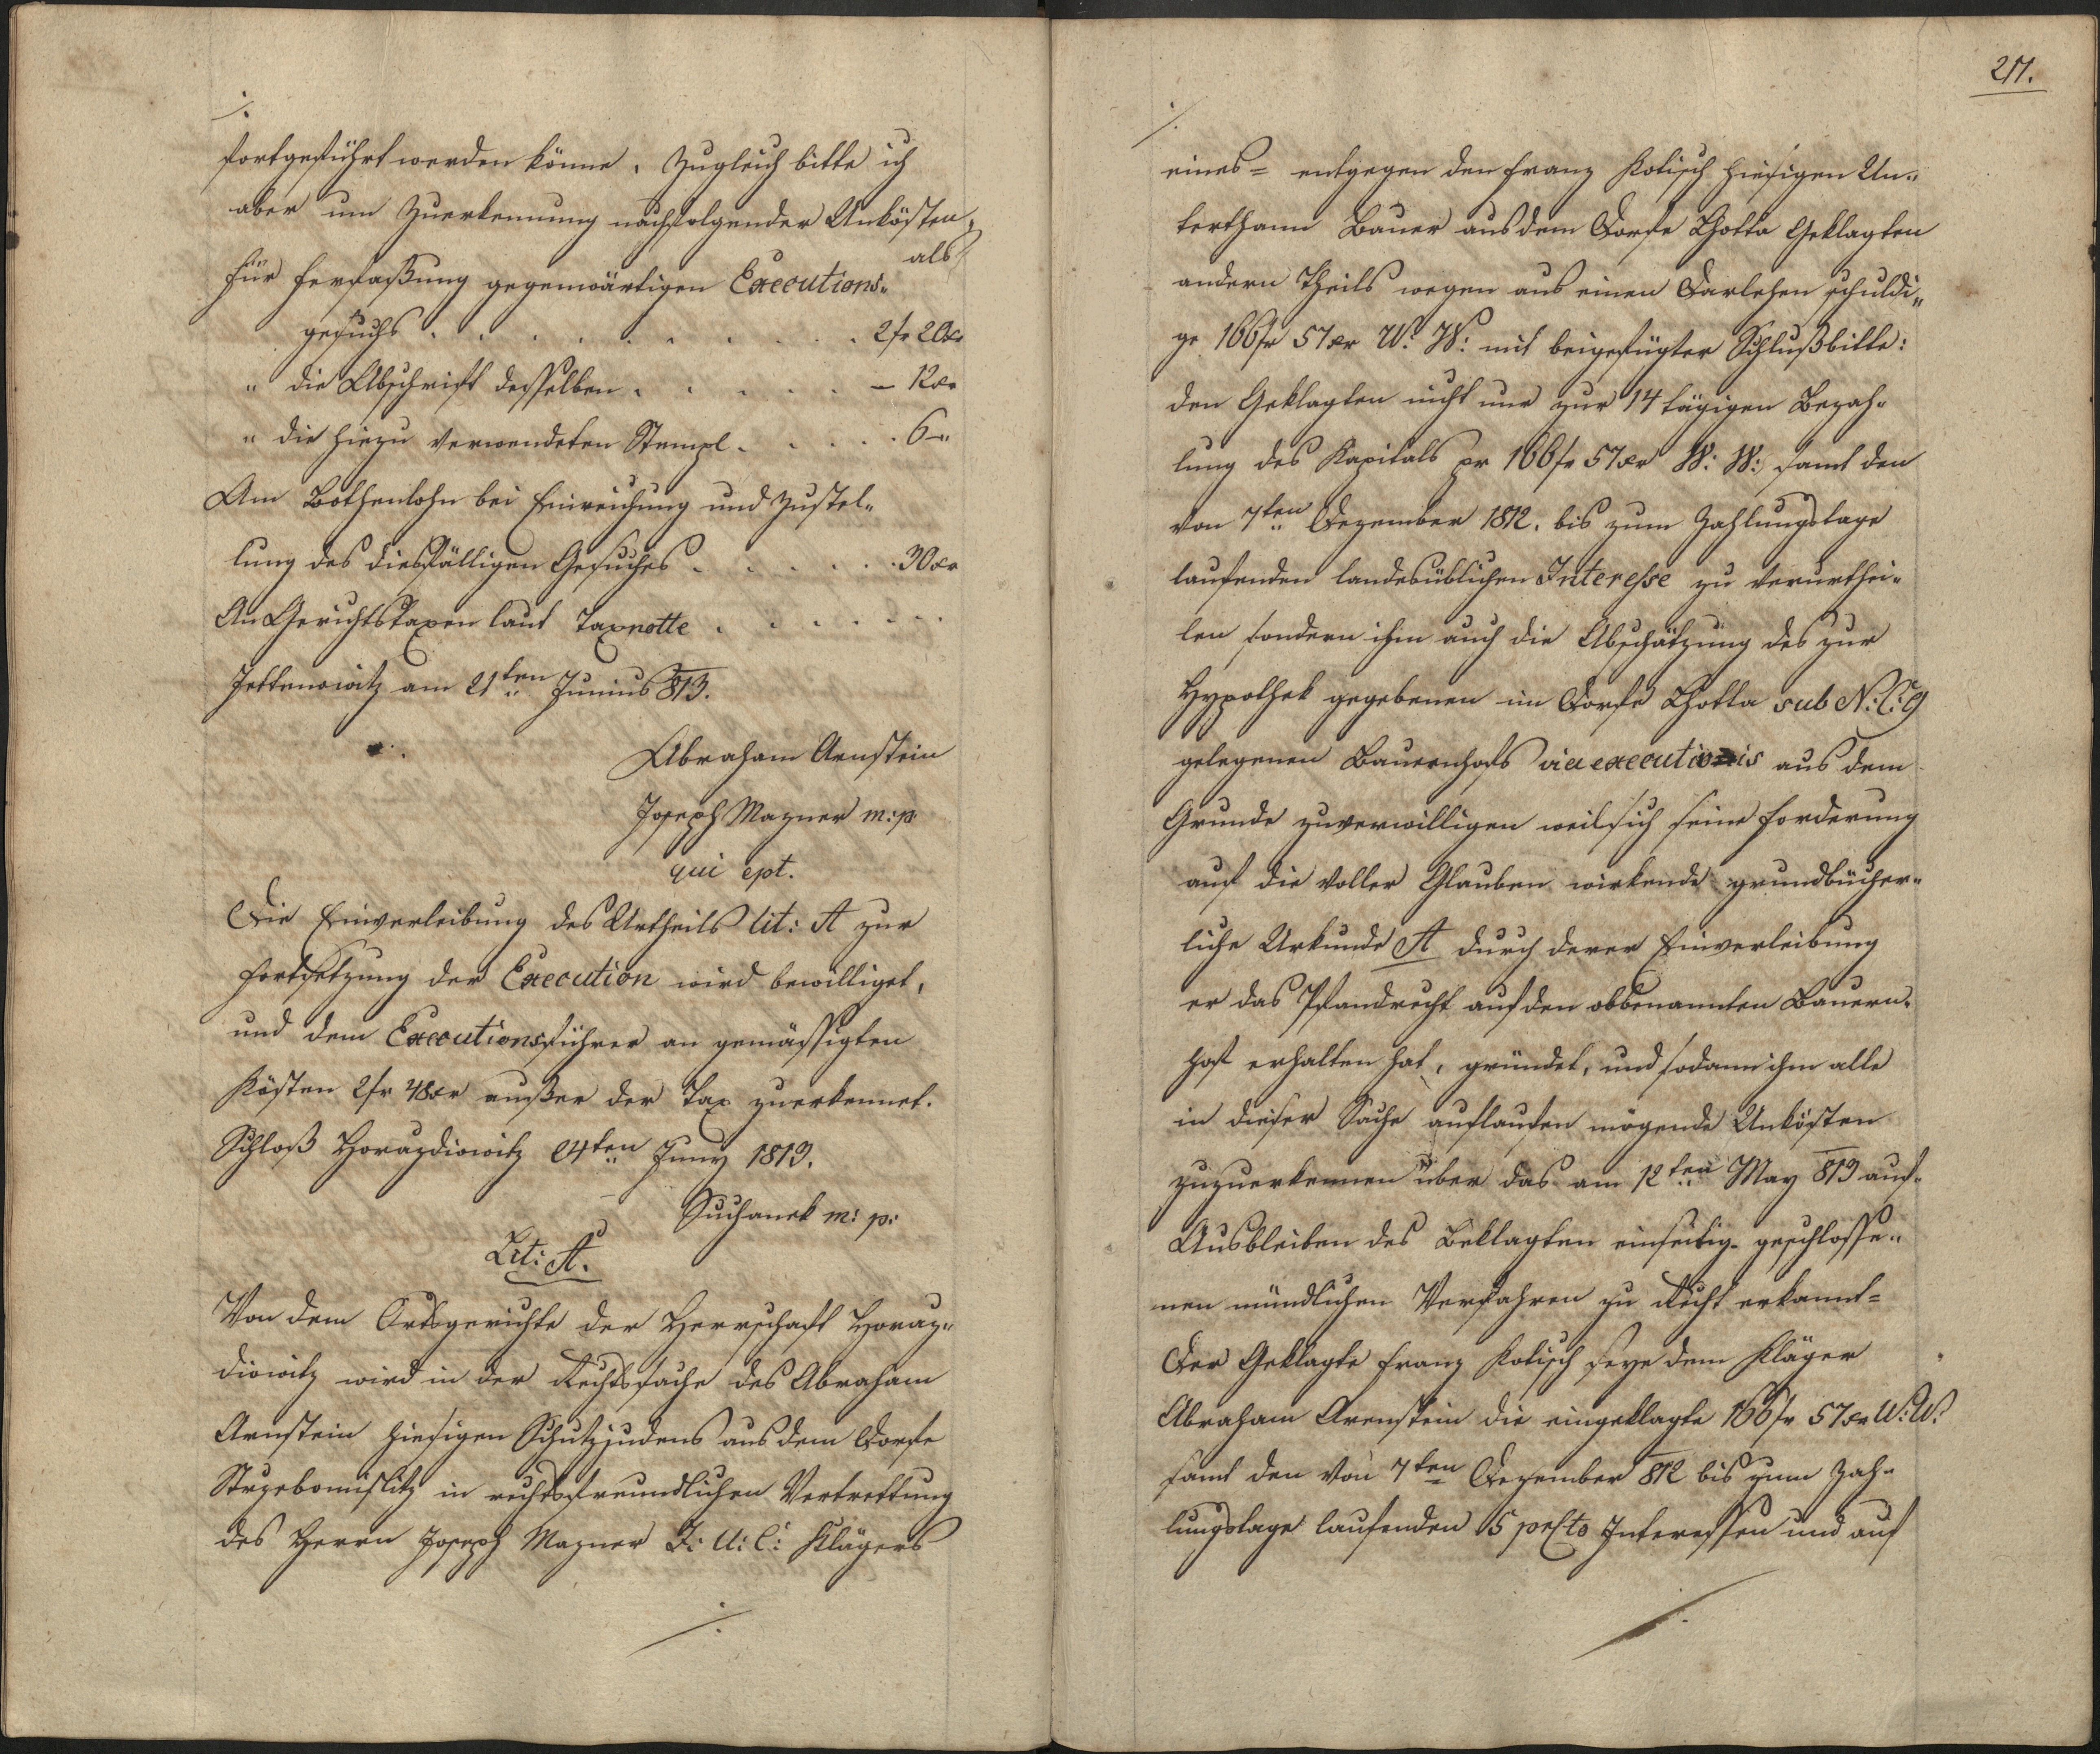 ./.
fortgeführt werden könne. Zugleich bitte ich
aber um Zuerkennung nachfolgender Unkösten,
als
für Verfaßung gegenwärtigen Executions-
gesuchs . . . . . . . . . 2 fr 20 xr
" die Abschrift desselben . . . . . — 12 xr
" die hiezu verwendeten Stempl . . . . . 6 —"
Am Bothenlohn bei Einreichung und Zustel-
lung des diesfälligen Gesuches . . . . . . 30 xr
An Gerichtstaxen laut Taxnotte . . . . . . .
am 21ten Junius 813.
Abraham Arnstein
Joseph Mazner m: p:
qui ept.
Die Einverleibung des Urtheils lit: A zur
Fortsetzung der Execution wird bewilliget,
und dem Executionsführer an gemässigten
Kösten 2 fr 48 xr außer der Tax zuerkennet.
Schloß Horazdiowitz 24ten Juny 1813.
Suchanek m: p:
Lit: A.
Von dem Ortsgerichte der Herrschaft Horaz-
diowitz wird in der Rechtssache des Abraham
Arnstein hiesigen Schutzjudens aus dem Dorfe
Strzebomislitz in rechtsfreundlichen Vertrettung
des Herrn Joseph Mazner J: U: C: Klägers
./.
217.
./.
eines = entgegen den Franz Kotisch hiesigen Un-
terthann Bauer aus dem Dorfe Lhotta Geklagten
andern Theils wegen aus einen Darlehen schuldi-
ge 166 fr 57 xr W: W: mit beigefügter Schlußbitte:
den Geklagten nicht nur zur 14 tägigen Bezah-
lung des Kapitals pr 166 fr 57 xr W: W: samt den
von 7ten Dezember 1812. bis zum Zahlungstage
laufenden landesüblichen Interesse zu verurthei-
len sondern ihm auch die Abschätzung des zur
Hypothek gegebenen im Dorfe Lhotta sub N: C: 9
gelegenen Bauernhofs via executionis aus dem
Grunde zuverwilligen weil sich seine Forderung
auf die voller Glauben wirkende grundbücher-
liche Urkunde A durch derer Einverleibung
er das Pfandrecht auf den obbenannten Bauern-
hof erhalten hat, gründet, und sodann ihm alle
in dieser Sache auflaufen mögende Unkösten
zuzuerkennen über das am 12ten May 813 auf
Ausbleiben des Beklagten einseitig geschlosse-
nen mündlichen Verfahren zu Recht erkannt =
Der Geklagte Franz Kotisch seye dem Kläger
Abraham Arenstein die eingeklagte 166 fr 57 xr W: W:
samt den von 7ten Dezember 812 bis zum Zah-
lungstage laufenden 5 perCto Interessen und auf
./.